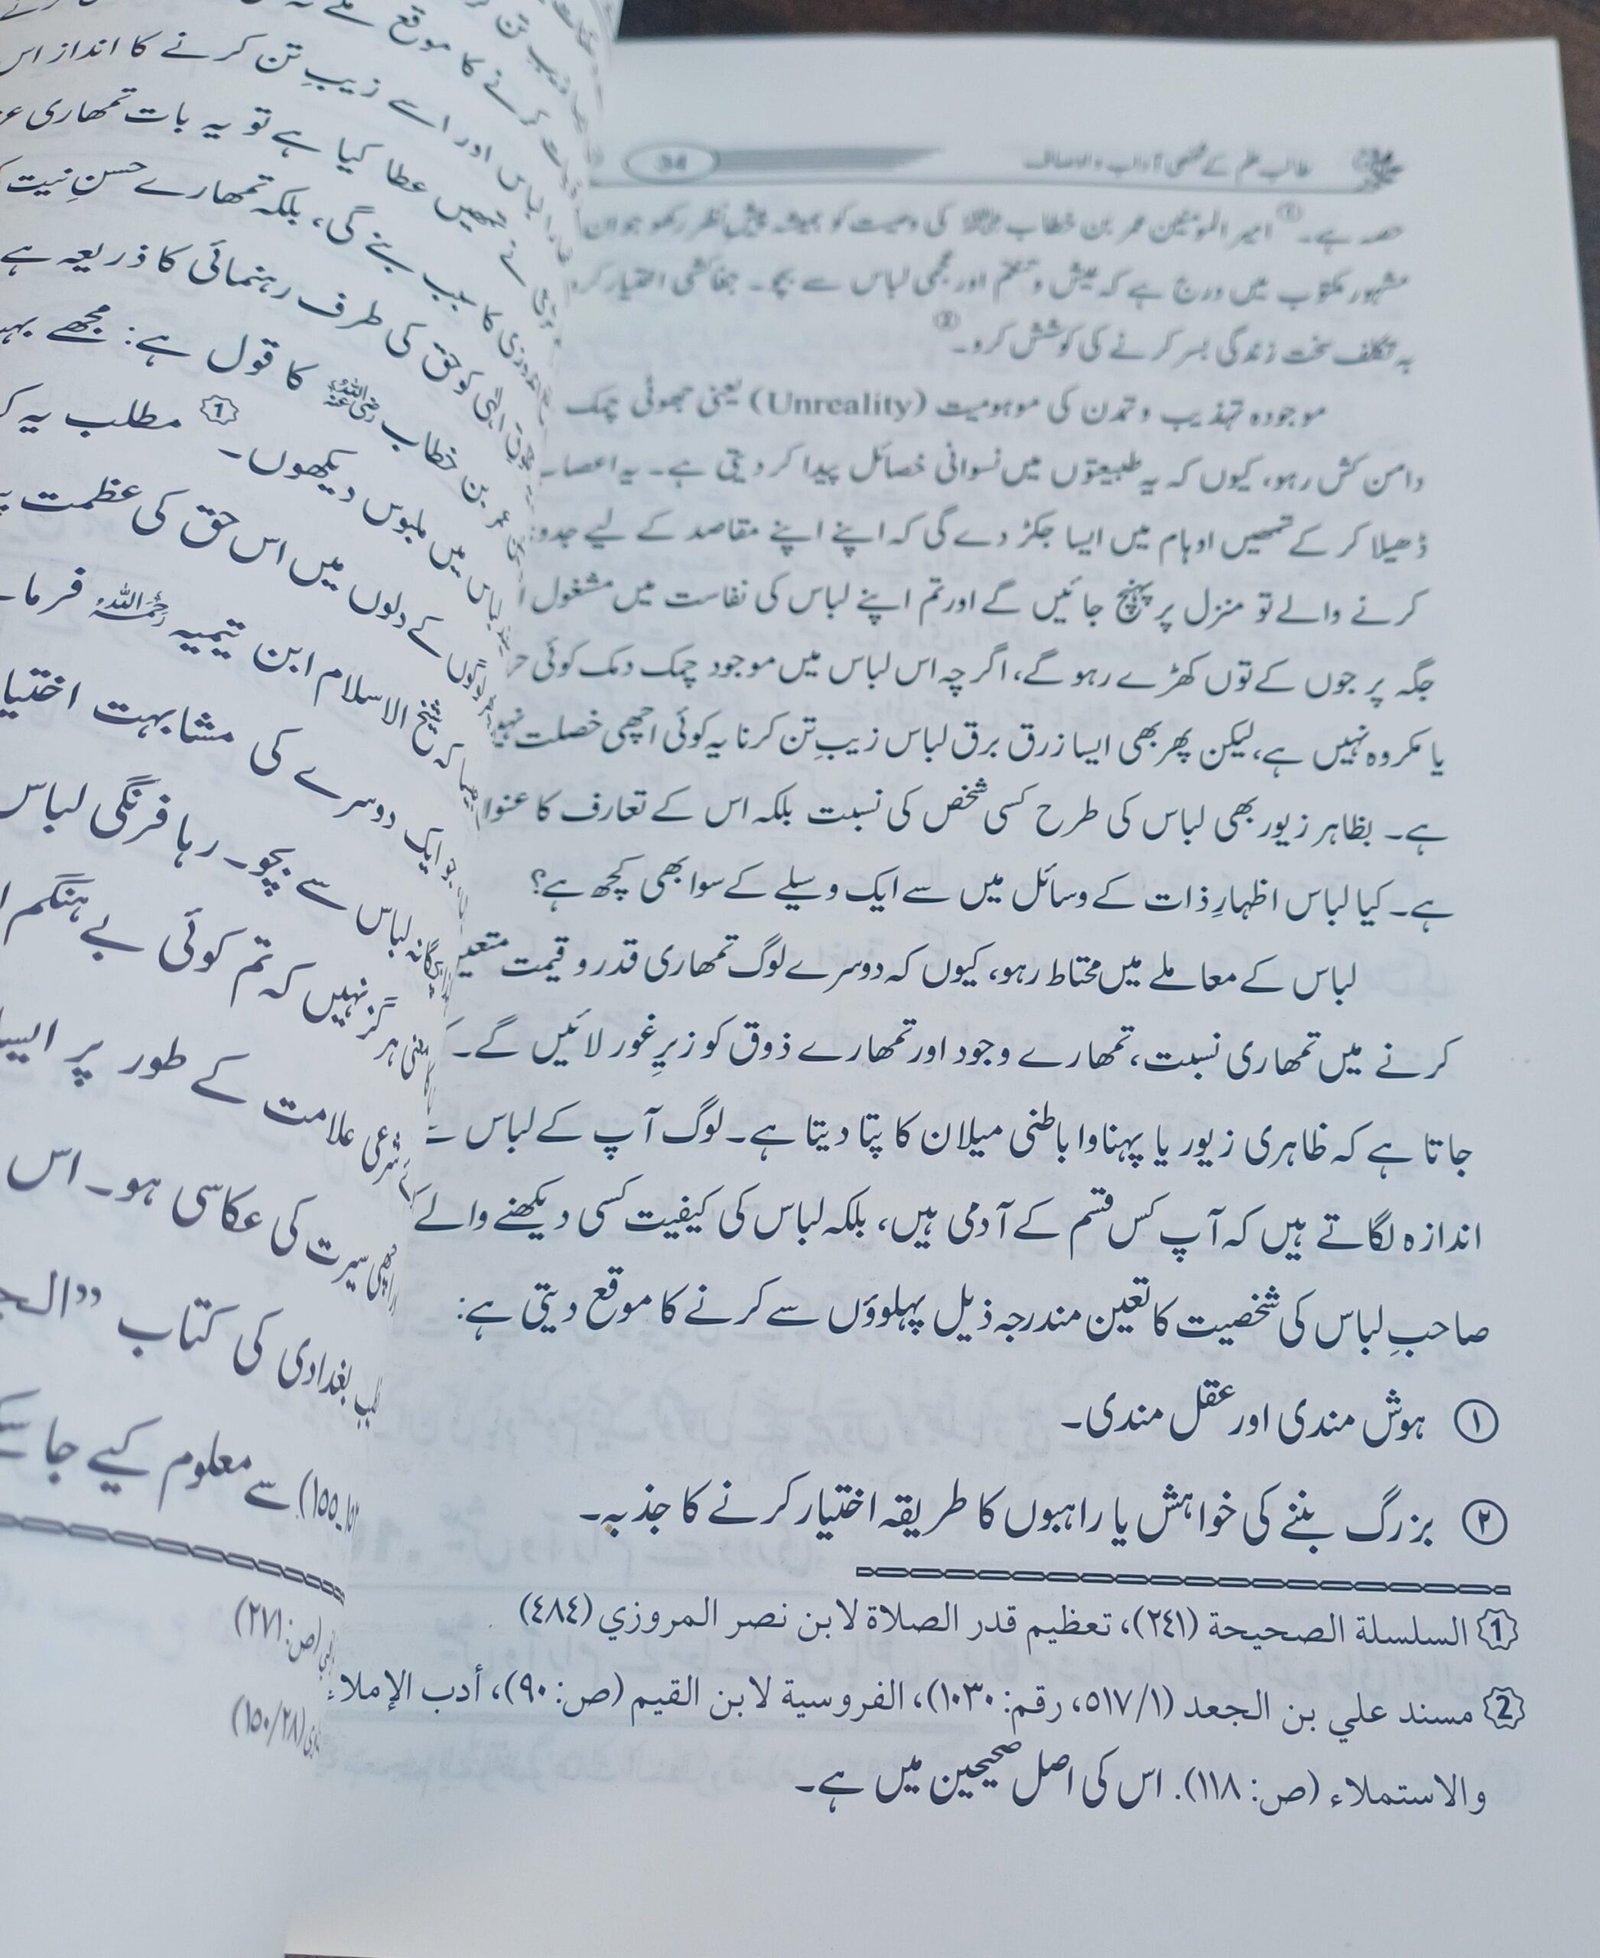 طالب علم کے شخصی آداب و اوصاف
34
حصہ ہے۔① امیر المومنین عمر بن خطاب رضی اللہ عنہ کی وصیت کو ہمیشہ پیشِ نظر رکھو جو ان
مشہور مکتوب میں درج ہے کہ عیش و تنعم اور عجمی لباس سے بچو۔ جفاکشی اختیار کرو
بہ تکلف سخت زندگی بسر کرنے کی کوشش کرو۔②
موجودہ تہذیب و تمدن کی موہومیت (Unreality) یعنی جھوٹی چمک
دامن کش رہو، کیوں کہ یہ طبیعتوں میں نسوانی خصائل پیدا کر دیتی ہے۔ یہ اعصا
ڈھیلا کر کے تمھیں اوہام میں ایسا جکڑ دے گی کہ اپنے اپنے مقاصد کے لیے جدو
کرنے والے تو منزل پر پہنچ جائیں گے اور تم اپنے لباس کی نفاست میں مشغول
جگہ پر جوں کے توں کھڑے رہو گے، اگر چہ اس لباس میں موجود چمک دمک کوئی حر
یا مکروہ نہیں ہے، لیکن پھر بھی ایسا زرق برق لباس زیبِ تن کرنا یہ کوئی اچھی خصلت نہیں
ہے۔ بظاہر زیور بھی لباس کی طرح کسی شخص کی نسبت بلکہ اس کے تعارف کا عنوا
ہے۔ کیا لباس اظہارِ ذات کے وسائل میں سے ایک وسیلے کے سوا بھی کچھ ہے؟
لباس کے معاملے میں محتاط رہو، کیوں کہ دوسرے لوگ تمھاری قدر و قیمت متعین
کرنے میں تمھاری نسبت، تمھارے وجود اور تمھارے ذوق کو زیرِ غور لائیں گے۔
جاتا ہے کہ ظاہری زیور یا پہناوا باطنی میلان کا پتا دیتا ہے۔ لوگ آپ کے لباس
اندازہ لگاتے ہیں کہ آپ کس قسم کے آدمی ہیں، بلکہ لباس کی کیفیت کسی دیکھنے والے
صاحبِ لباس کی شخصیت کا تعین مندرجہ ذیل پہلوؤں سے کرنے کا موقع دیتی ہے:
① ہوش مندی اور عقل مندی۔
② بزرگ بننے کی خواہش یا راہبوں کا طریقہ اختیار کرنے کا جذبہ۔
① السلسلة الصحيحة (٢٤١)، تعظيم قدر الصلاة لابن نصر المروزي (٤٨٤)
② مسند علي بن الجعد (٥١٧/١، رقم: ١٠٣٠)، الفروسية لابن القيم (ص: ٩٠)، أدب الإملاء
والاستملاء (ص: ١١٨). اس کی اصل صحیحین میں ہے۔
کرنے کا موقع ملے
لباس اور اسے زیبِ تن کرنے کا انداز اس
نے تمھیں عطا کیا ہے تو یہ بات تمھاری
کا سبب بنے گی، بلکہ تمھارے حسنِ نیت
کو حق کی طرف رہنمائی کا ذریعہ ہے
عمر بن خطاب رضی اللہ عنہ کا قول ہے: مجھے
لباس میں ملبوس دیکھوں۔① مطلب یہ
لوگوں کے دلوں میں اس حق کی عظمت
کہ شیخ الاسلام ابن تیمیہ رحمہ اللہ فرما
جو ایک دوسرے کی مشابہت اختیا
لباس سے بچو۔ رہا فرنگی لباس
معنی ہرگز نہیں کہ تم کوئی بے ہنگم
شرعی علامت کے طور پر ایسا
اچھی سیرت کی عکاسی ہو۔ اس
بغدادی کی کتاب ”الج
١٥٥) سے معلوم کیے جا سکے
(ص: ٢٧١)
(١٥٠/٢٨)